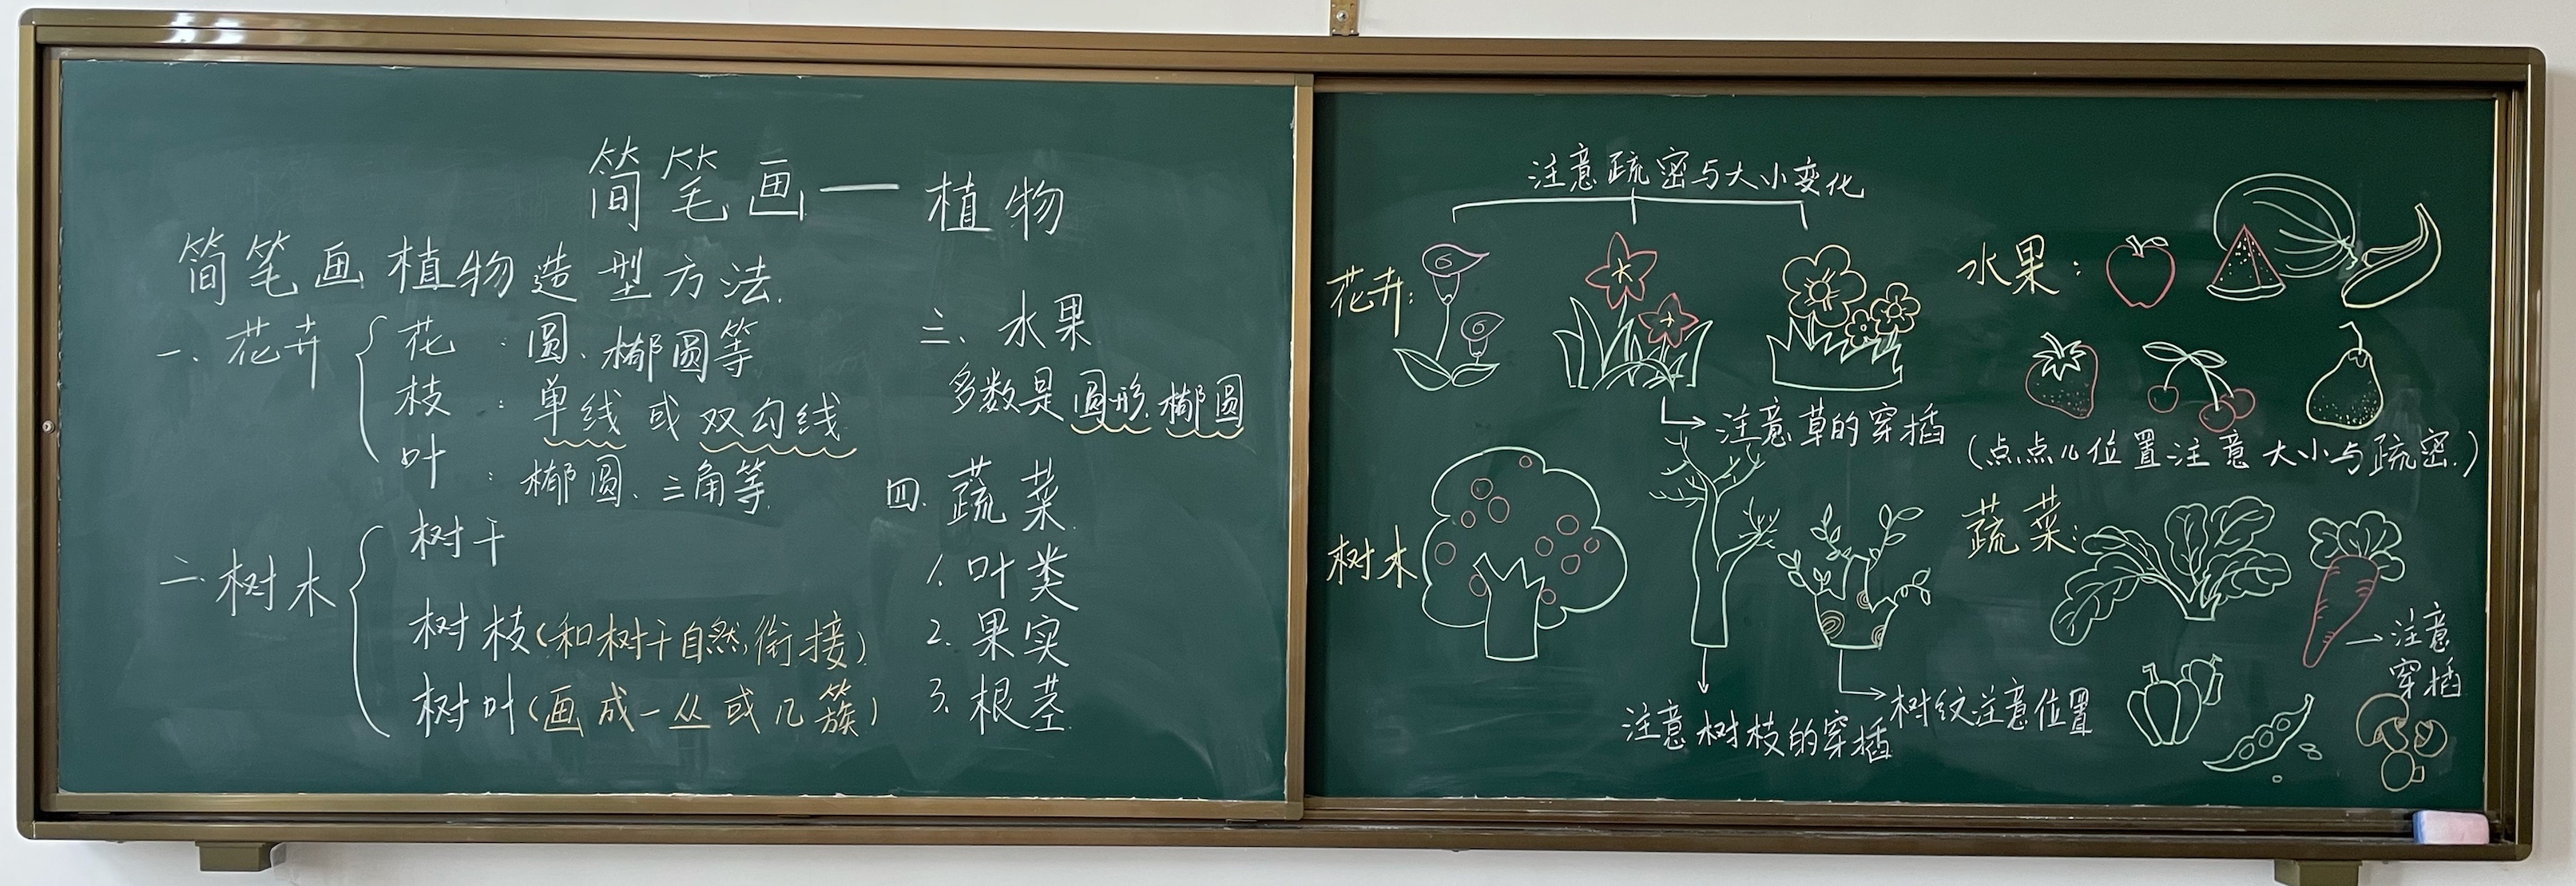 简笔画一植物
简笔画植物造型方法.
一、花卉
花：圆、椭圆等
枝：单线或双勾线
叶：椭圆、三角等.
二.树木
树干
树枝(和树干自然衔接)
树叶(画成一丛或几簇)
三、水果
多数是圆形.椭圆
四.蔬菜.
1.叶类
2.果实
3.根茎.
注意疏密与大小变化
花卉：
注意草的穿插
树木
注意树枝的穿插
树纹注意位置
水果：
(点点儿位置注意大小与疏密.)
蔬菜：
注意
穿插